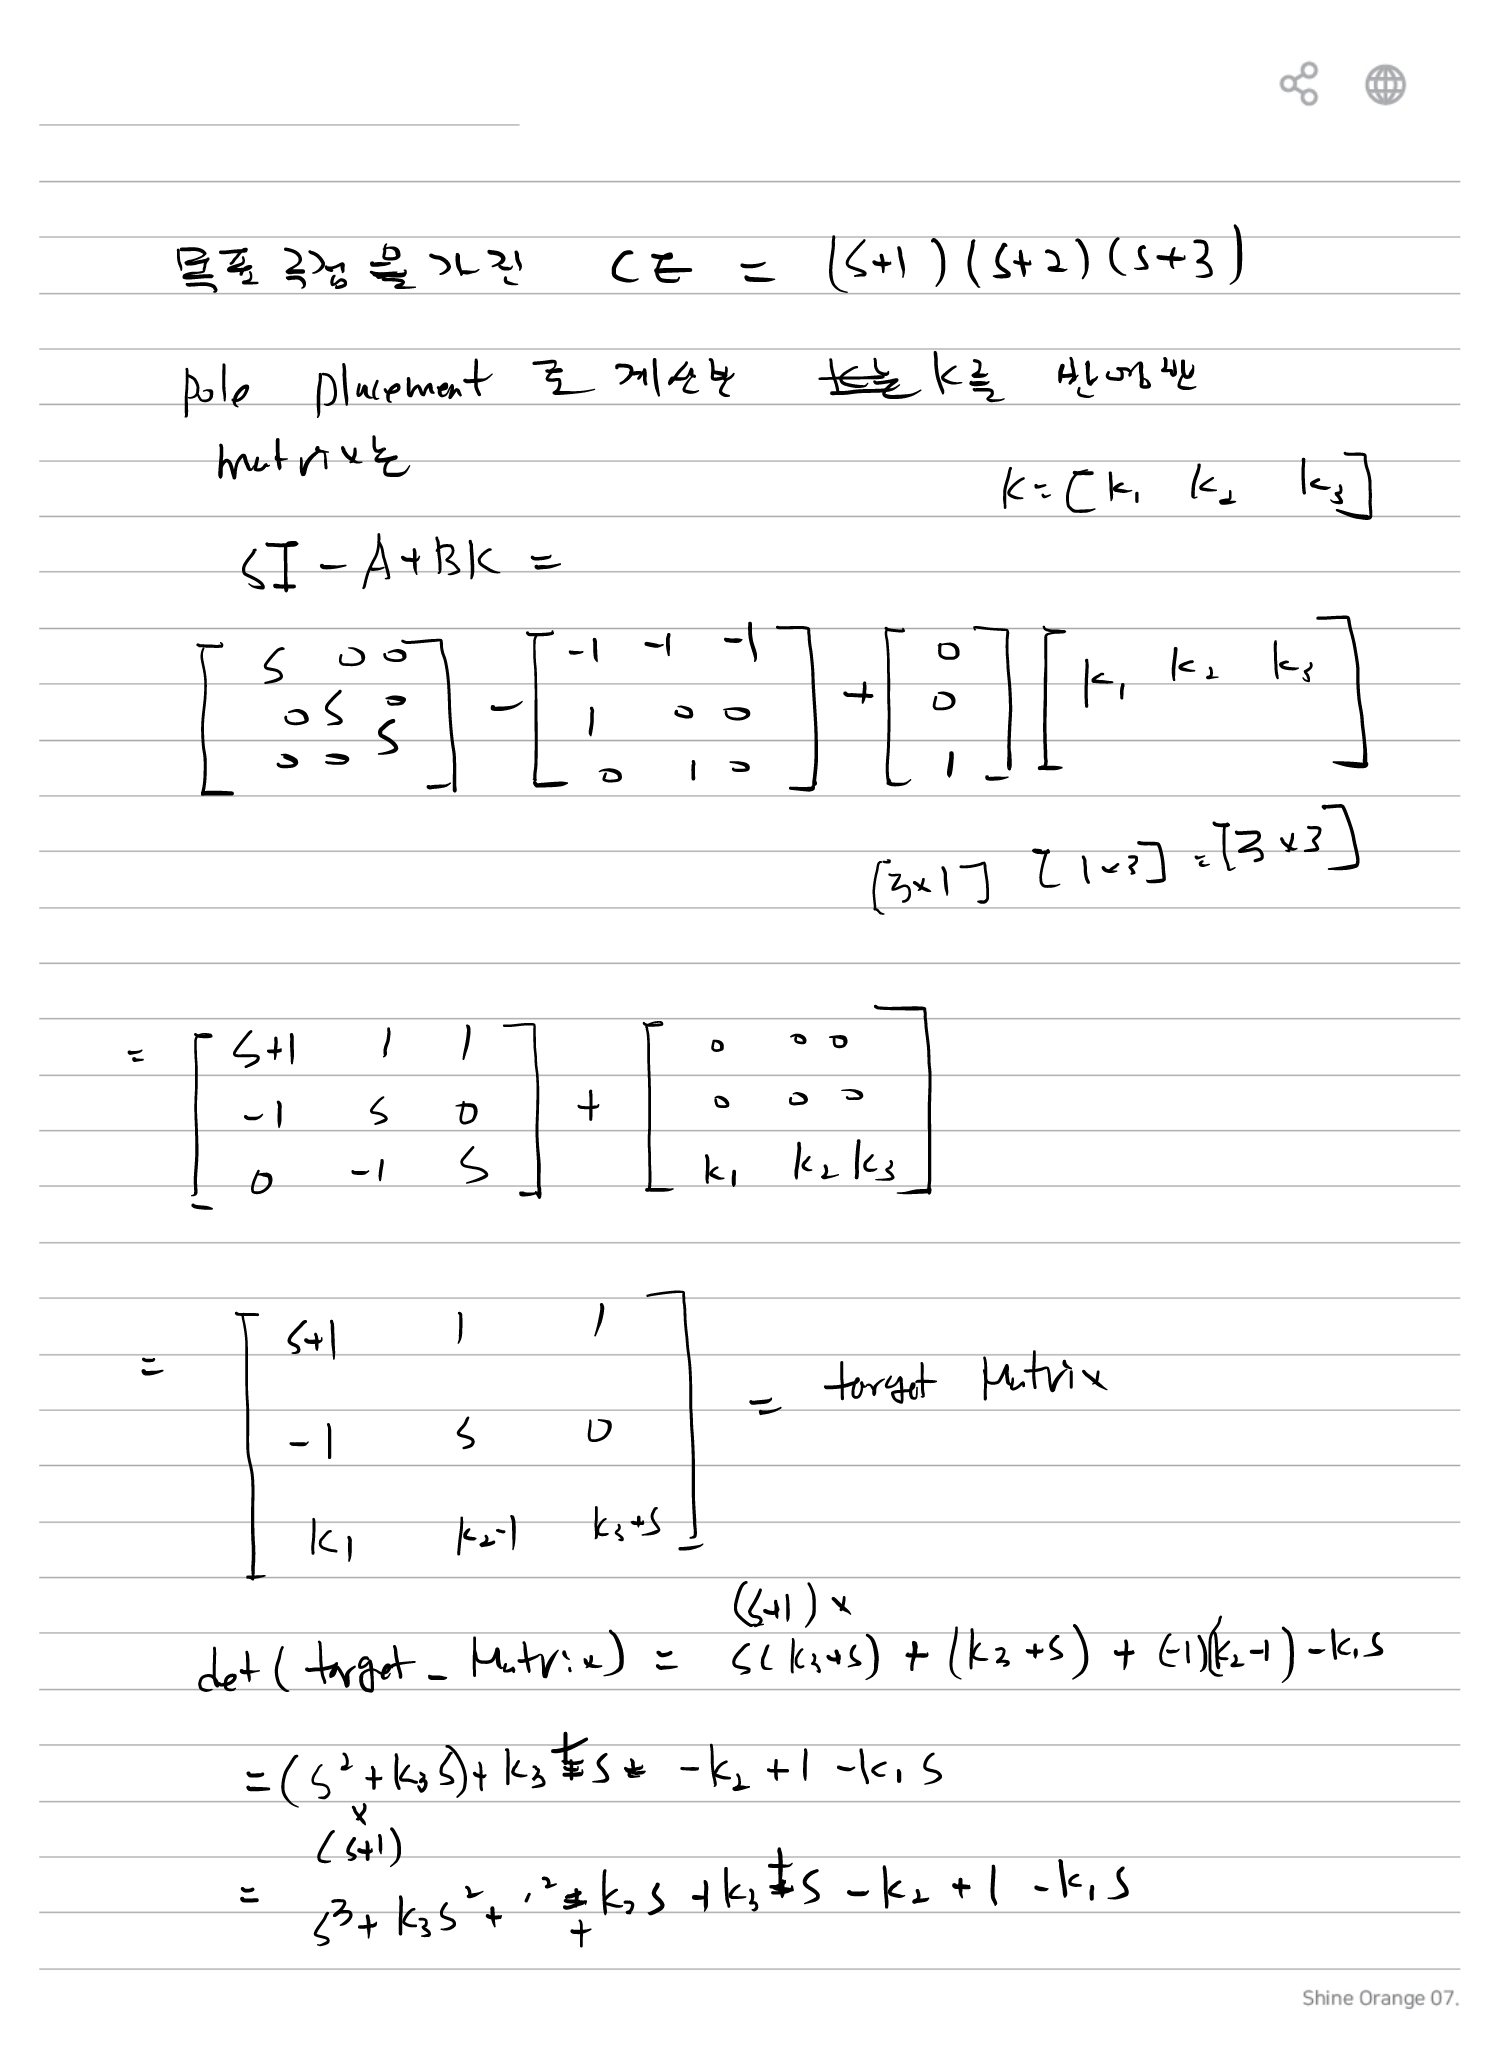 목표 극점을 가진 CE = (s+1)(s+2)(s+3)
pole placement로 계산한 K를 반영한
matrix는
K = [k₁ k₂ k₃]
sI - A + BK =
[s 0 0; 0 s 0; 0 0 s] - [-1 -1 -1; 1 0 0; 0 1 0] + [0; 0; 1] [k₁ k₂ k₃]
[3×1] [1×3] = [3×3]
= [s+1 1 1; -1 s 0; 0 -1 s] + [0 0 0; 0 0 0; k₁ k₂ k₃]
= [s+1 1 1; -1 s 0; k₁ k₂-1 k₃+s] = target Matrix
(s+1) ×
det(target_Matrix) = s(k₃+s) + (k₃+s) + (-1)(k₂-1) - k₁s
= (s² + k₃s) + k₃ + s - k₂ + 1 - k₁s
×
(s+1)
= s³ + k₃s² + ² + k₃s + k₃ + s - k₂ + 1 - k₁s
Shine Orange 07.